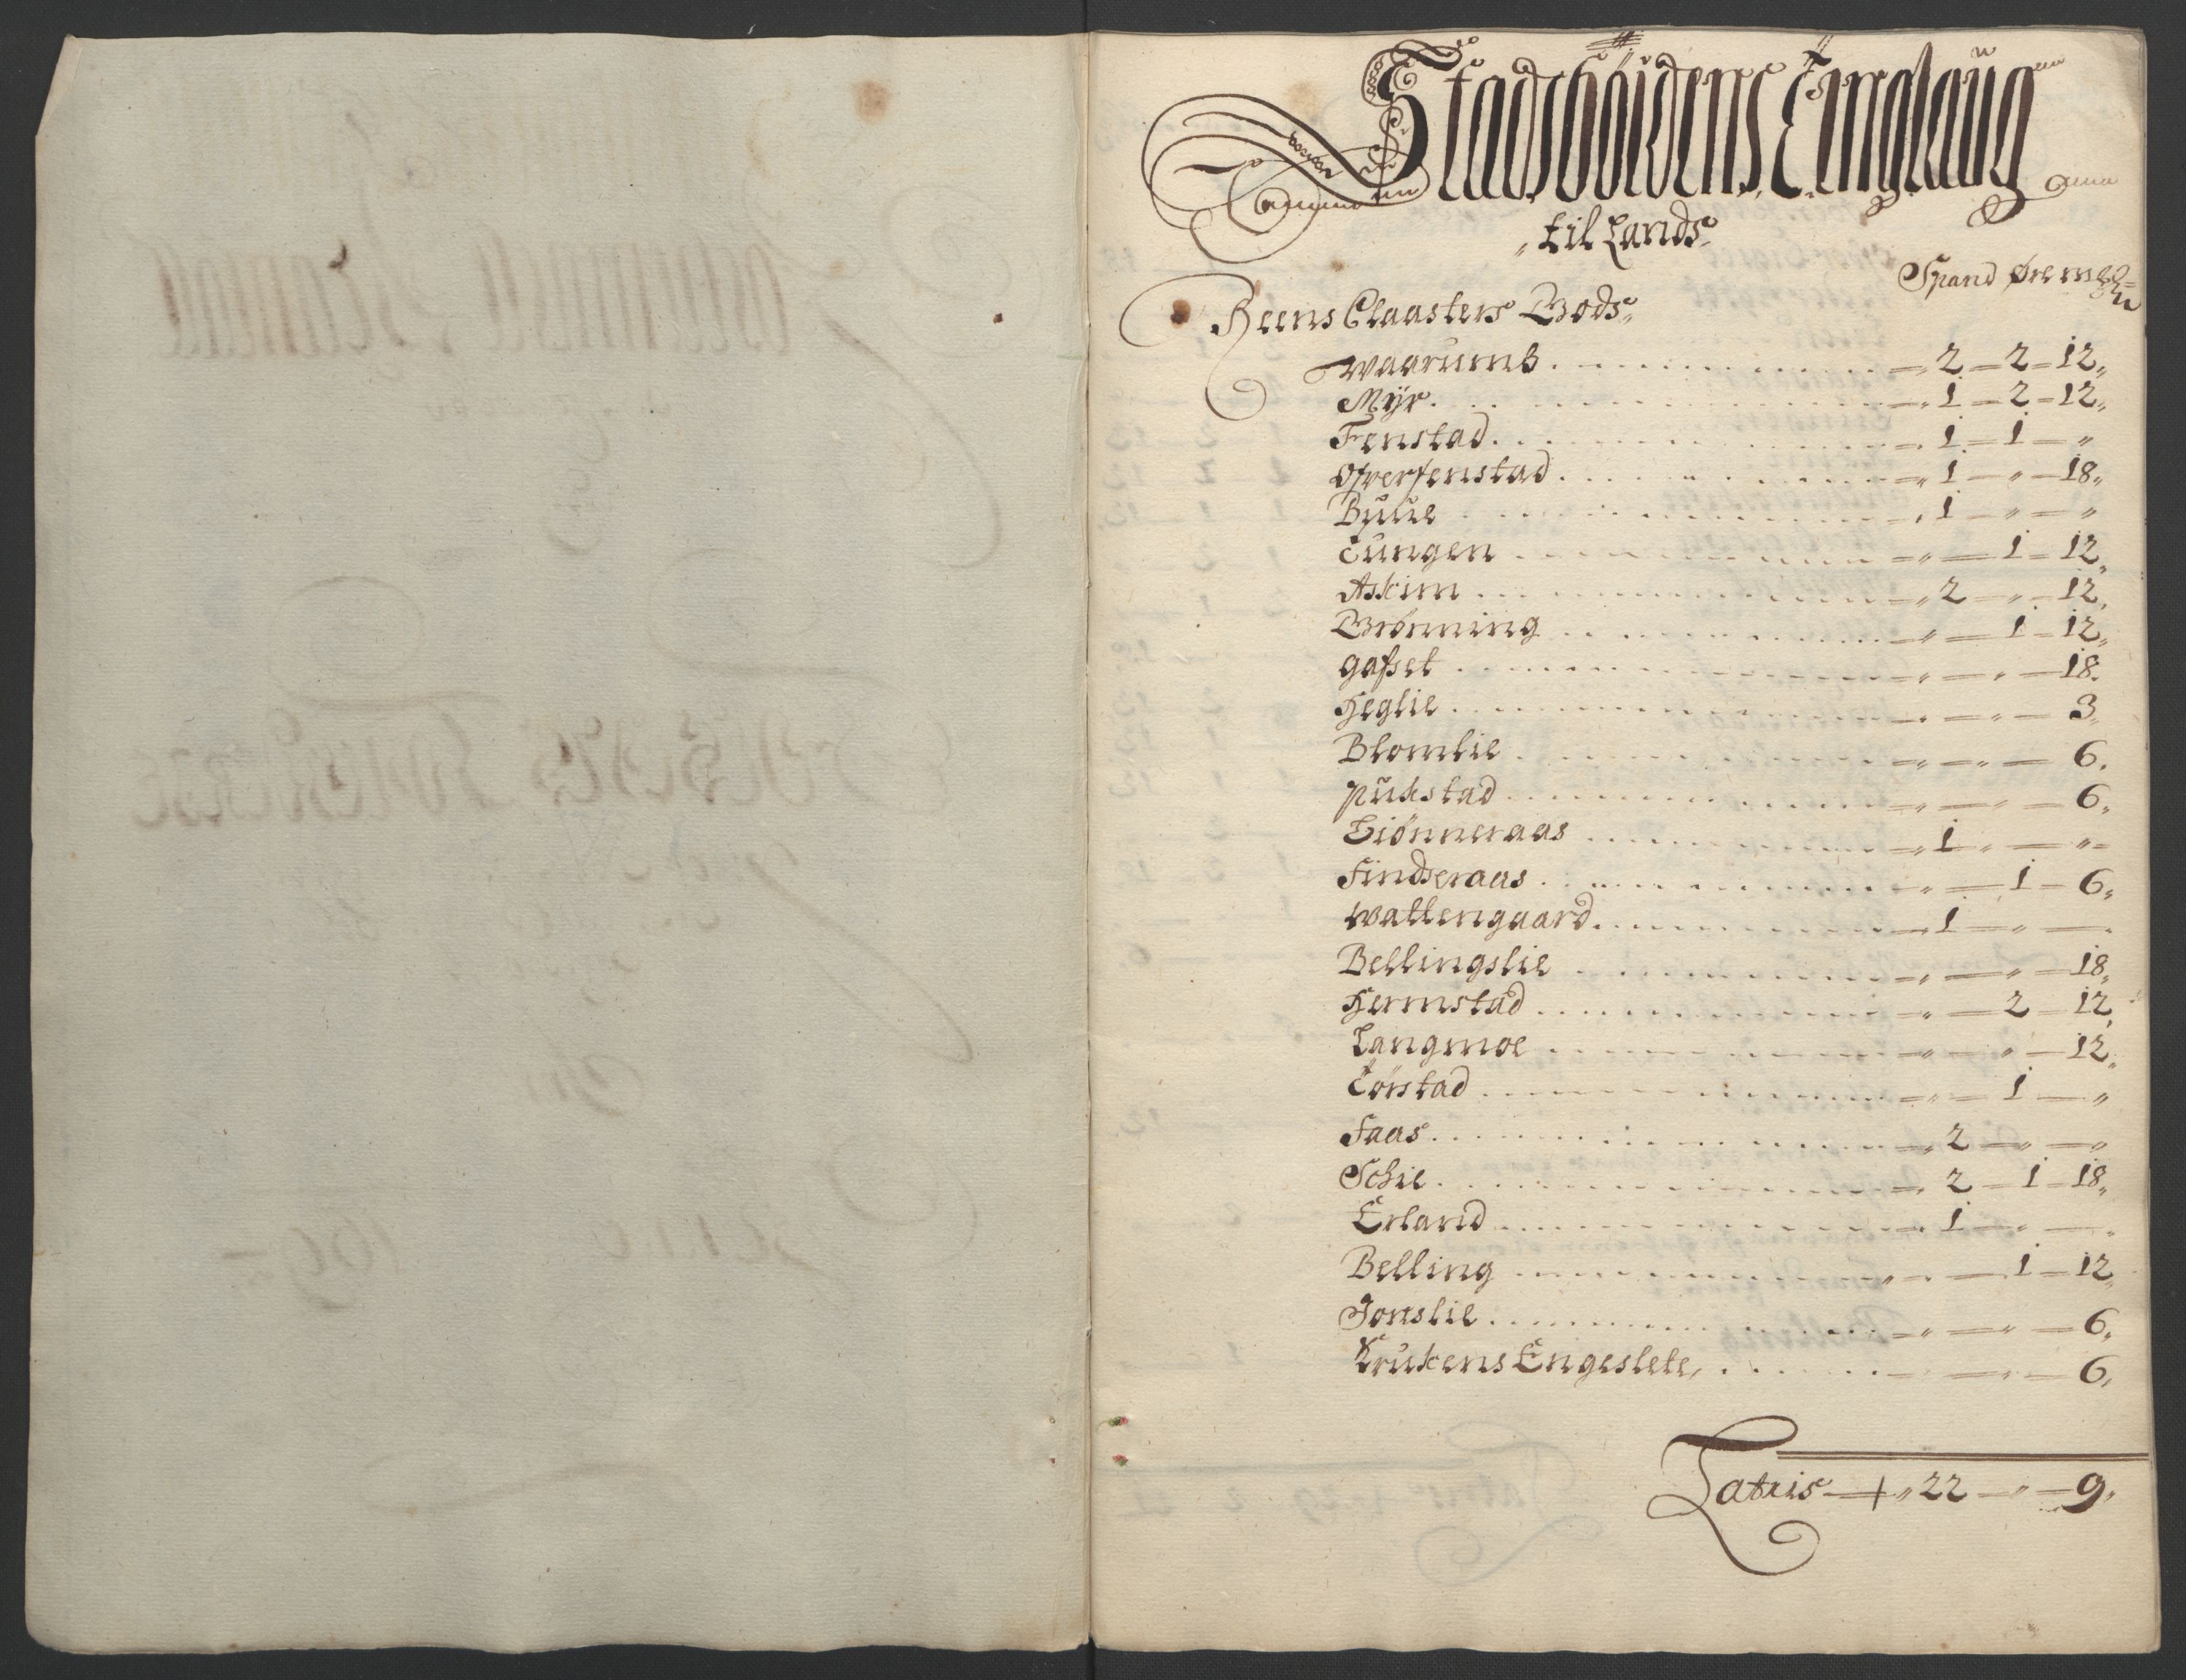 Stadsbøidens Tinglaug
til Lands
Spand øre mꝝ
Reens Claasters Gods
Waarumb 2 - 2 - 12
Mÿr 1 - 2 - 12
Fenstad 1 - 1 - "
Ofverfenstad 1 - " - 18
Byüe 1 - " - "
Tungen " - 1 - 12
Askim 2 - " - 12
Grønning " - 1 - 12
Gafset " - " - 18
Heglie " - " - 3
Blomlie " - " - 6
Pukstad " - " - 6
Liønneraas 1 - " - "
Findseraas " - 1 - 6
Wattengaard 1 - " -
Bellingslie " - " - 18
Hermstad " - 2 - 12
Langmoe " - " - 12
Tørstad " - 1 - "
Faas 2 - " - "
Schie 2 - 1 - 18
Erland 1 - " -
Belling " - 1 - 12
Jonslie " - " - 6
Krukens Engeslete " - 6
Latris 22 - " - 9